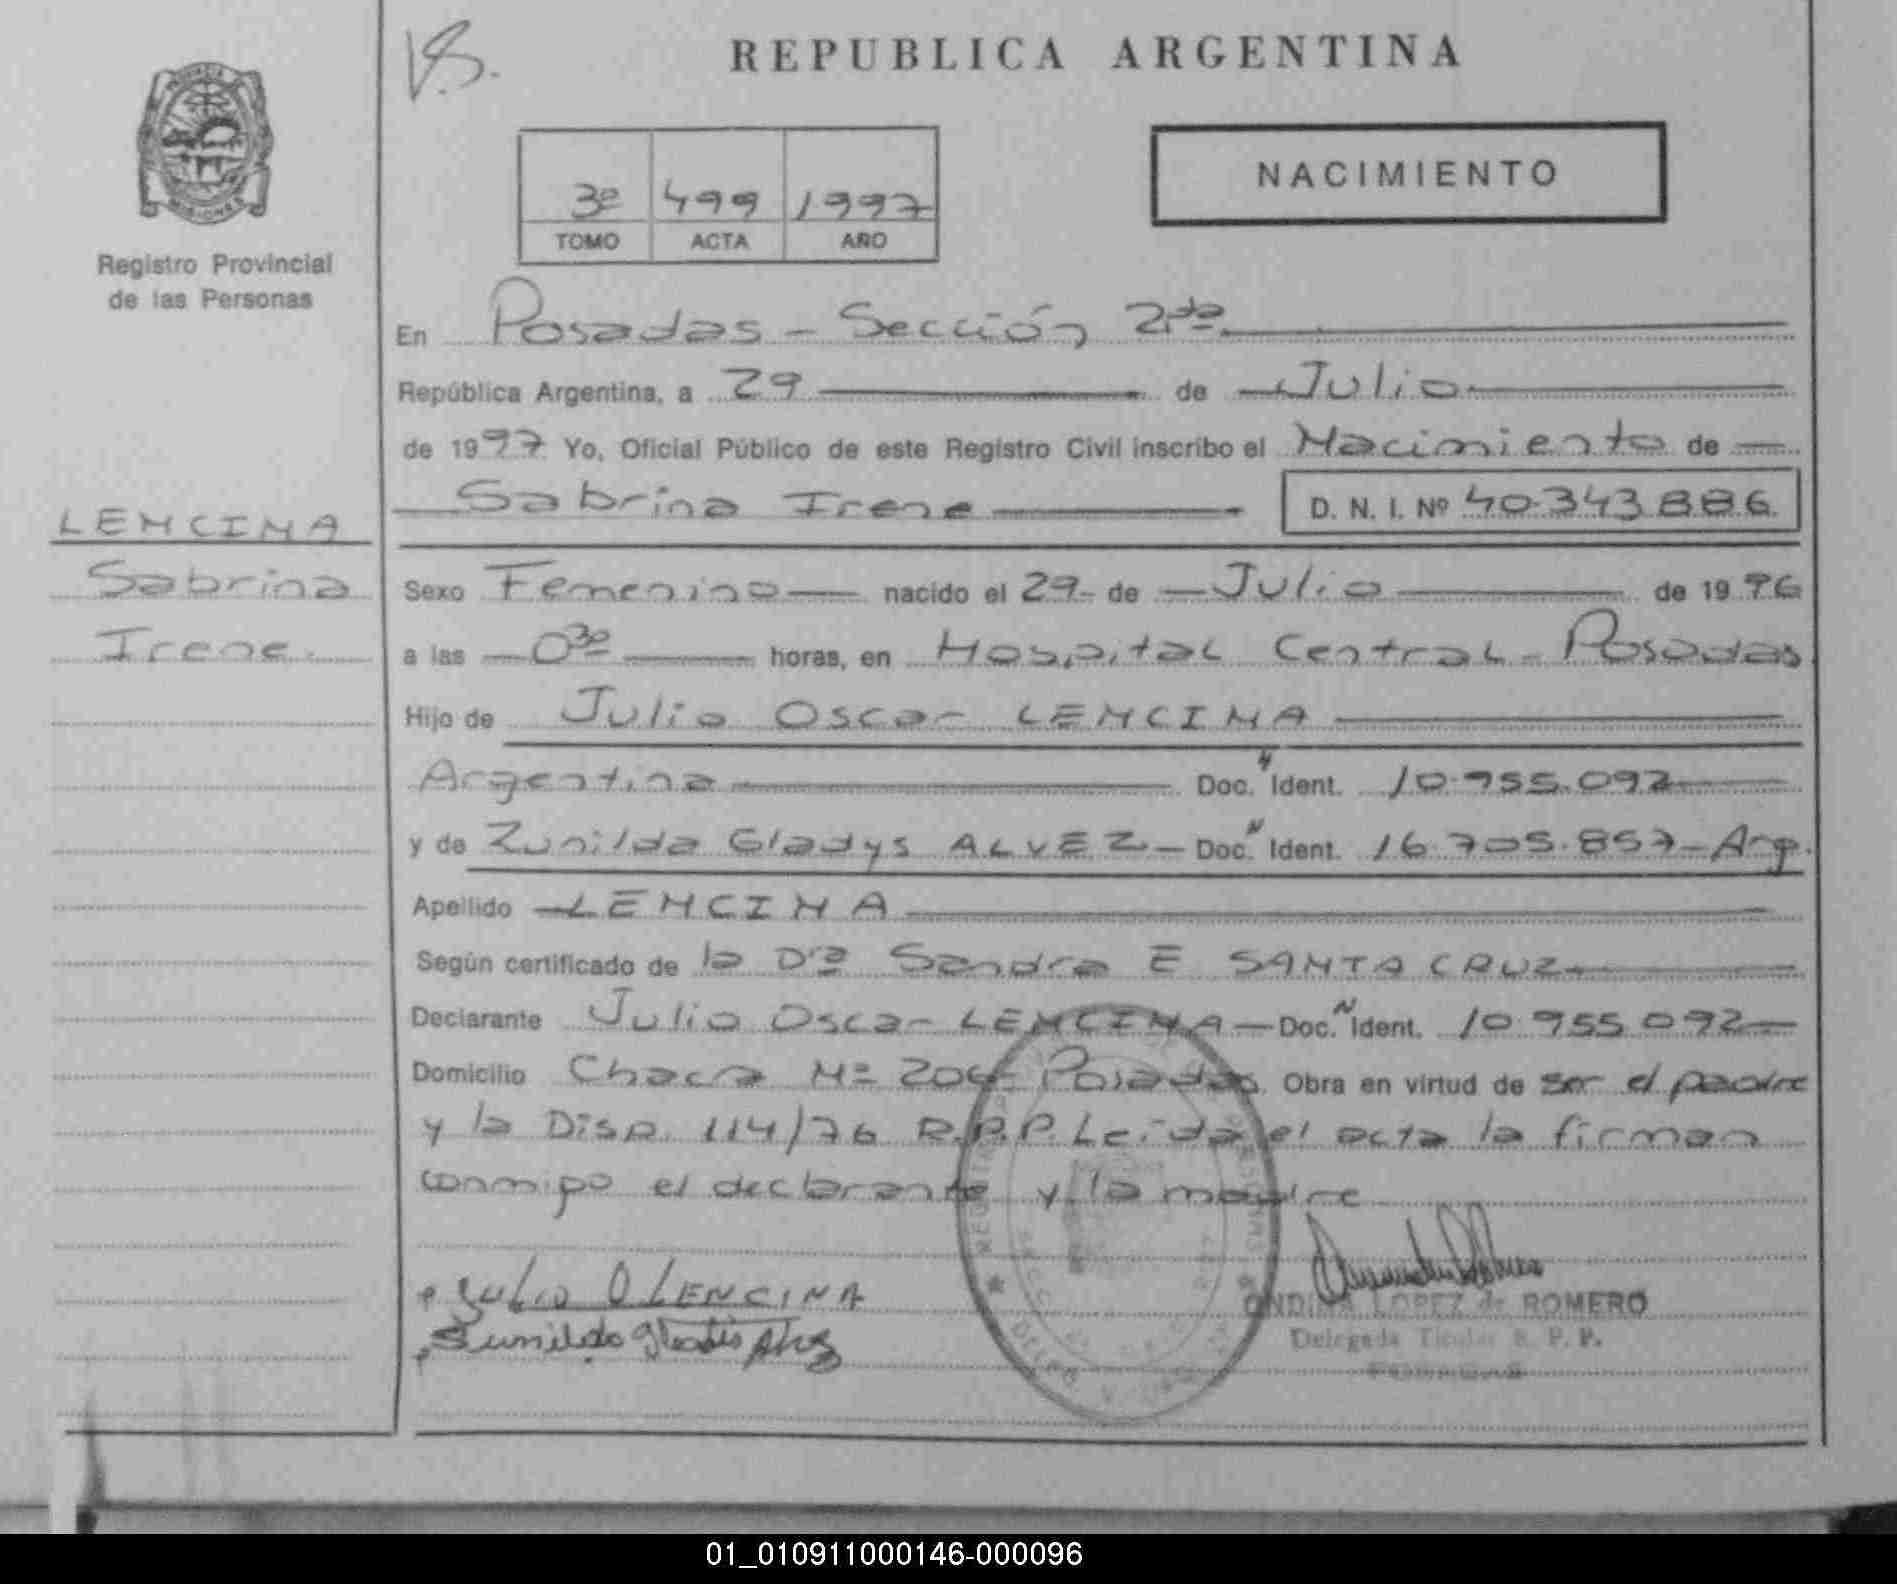 REPUBLICA ARGENTINA
NACIMIENTO
3º 499 1997
TOMO ACTA AÑO
MISIONES
Registro Provincial
de las Personas
En Posadas - Sección 2da
República Argentina, a 29 de Julio
de 1997 Yo, Oficial Público de este Registro Civil inscribo el Nacimiento de
Sabrina Irene D. N. I. Nº 40.343.886
LENCINA
Sabrina
Irene.
Sexo Femenino nacido el 29 de Julio de 1996
a las 0 30 horas, en Hospital Central - Posadas
Hijo de Julio Oscar LENCINA
Argentina Doc. N Ident. 10.955.092
y de Zunilda Gladys ALVEZ - Doc. N Ident. 16.705.857 - Arg.
Apellido LENCINA
Según certificado de la Dra Sandra E SANTA CRUZ
Declarante Julio Oscar LENCINA - Doc. N Ident. 10.955.092
Domicilio Chacra Nº 204 - Posadas Obra en virtud de ser el padre
y la Disp. 114/76 R.P.P. Leída el acta la firman
conmigo el declarante y la madre
JULIO O LENCINA
ONDINA LOPEZ de ROMERO
Delegada Titular R. P. P.
POSADAS
01_010911000146-000096